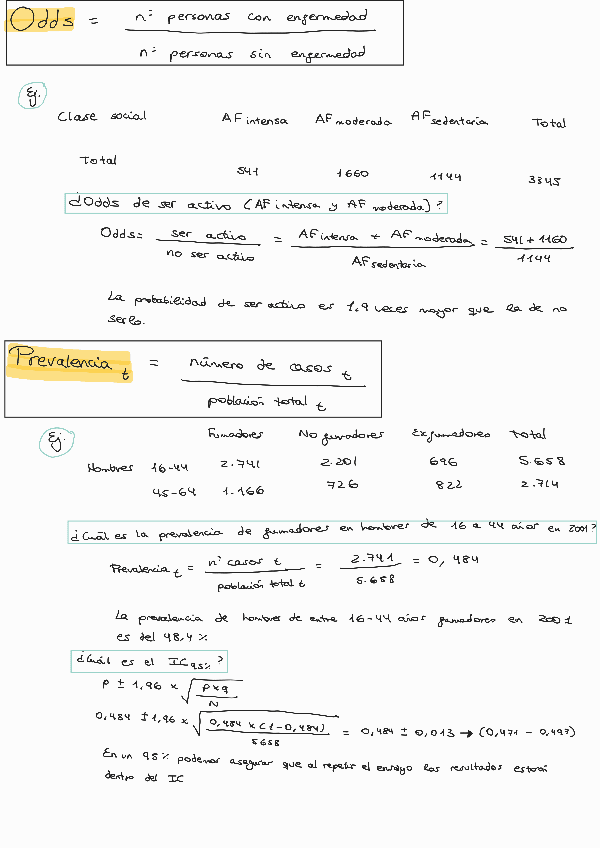 Odds = nº personas con enfermedad / nº personas sin enfermedad
Ej.
Clase social AF intensa AF moderada AF sedentaria Total
Total 541 1660 1144 3345
¿Odds de ser activo (AF intensa y AF moderada)?
Odds = ser activo / no ser activo = AF intensa + AF moderada / AF sedentaria = 541 + 1160 / 1144
La probabilidad de ser activo es 1,9 veces mayor que la de no
serlo.
Prevalencia t = número de casos t / población total t
Ej.
Fumadores No fumadores Exfumadores Total
Hombres 16-44 2.741 2.201 696 5.658
45-64 1.166 726 822 2.714
¿Cuál es la prevalencia de fumadores en hombres de 16 a 44 años en 2001?
Prevalencia t = nº casos t / población total t = 2.741 / 5.658 = 0,484
La prevalencia de hombres de entre 16-44 años fumadores en 2001
es del 48,4 %
¿Cuál es el IC 95%?
p ± 1,96 x √ p x q / N
0,484 ± 1,96 x √ 0,484 x (1-0,484) / 5658 = 0,484 ± 0,013 → (0,471 - 0,497)
En un 95 % podemos asegurar que al repetir el ensayo los resultados estarán
dentro del IC